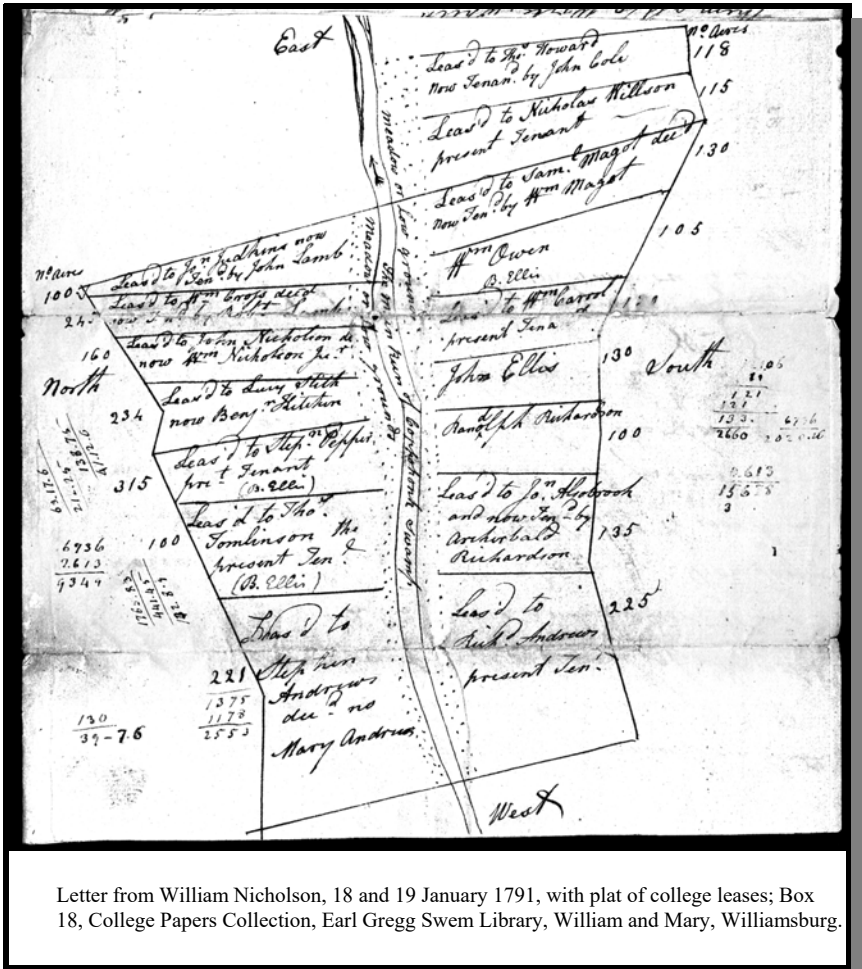 East
No. Acres
Leas'd to Tho.s Howard
now Tenan.d by John Cole
118
Leas'd to Nicholas Willson
present Tenant
115
Leas'd to Sam.l Magot dec'd
now Ten.d by Wm Magot
130
Wm Owen
B. Ellis
105
Leas'd to Wm Carrol
present Tena
John Ellis
130
Randolph Richardson
100
Leas'd to Jo.n Alsobrook
and now Ten.d by
Archirbald
Richardson
135
Leas'd to
Rich.d Andrews
present Ten.t
225
South
meadow or Low grounds
The main Run of Coppohonk Swamp
Meadow or Low grounds
No Acres
Leas'd to Jn Judkins now
Ten.d by John Lamb
100
Leas'd to Wm Cross dec'd
now
24
Leas'd to John Nicholson de.
now Wm Nicholson Ju.r
160
North
Leas'd to Lucy Stith
now Benj.n Kitchen
234
Leas'd to Step.n Pepper
pre.t Tenant
(B. Ellis)
315
Leas'd to Tho.s
Tomlinson the
present Ten.t
(B. Ellis)
100
Leas'd to
Stephen
Andrews
dec.d no
Mary Andrews
221
1375
1178
2553
6736
2613
9349
130
39-7.6
133
2660
West
Letter from William Nicholson, 18 and 19 January 1791, with plat of college leases; Box
18, College Papers Collection, Earl Gregg Swem Library, William and Mary, Williamsburg.